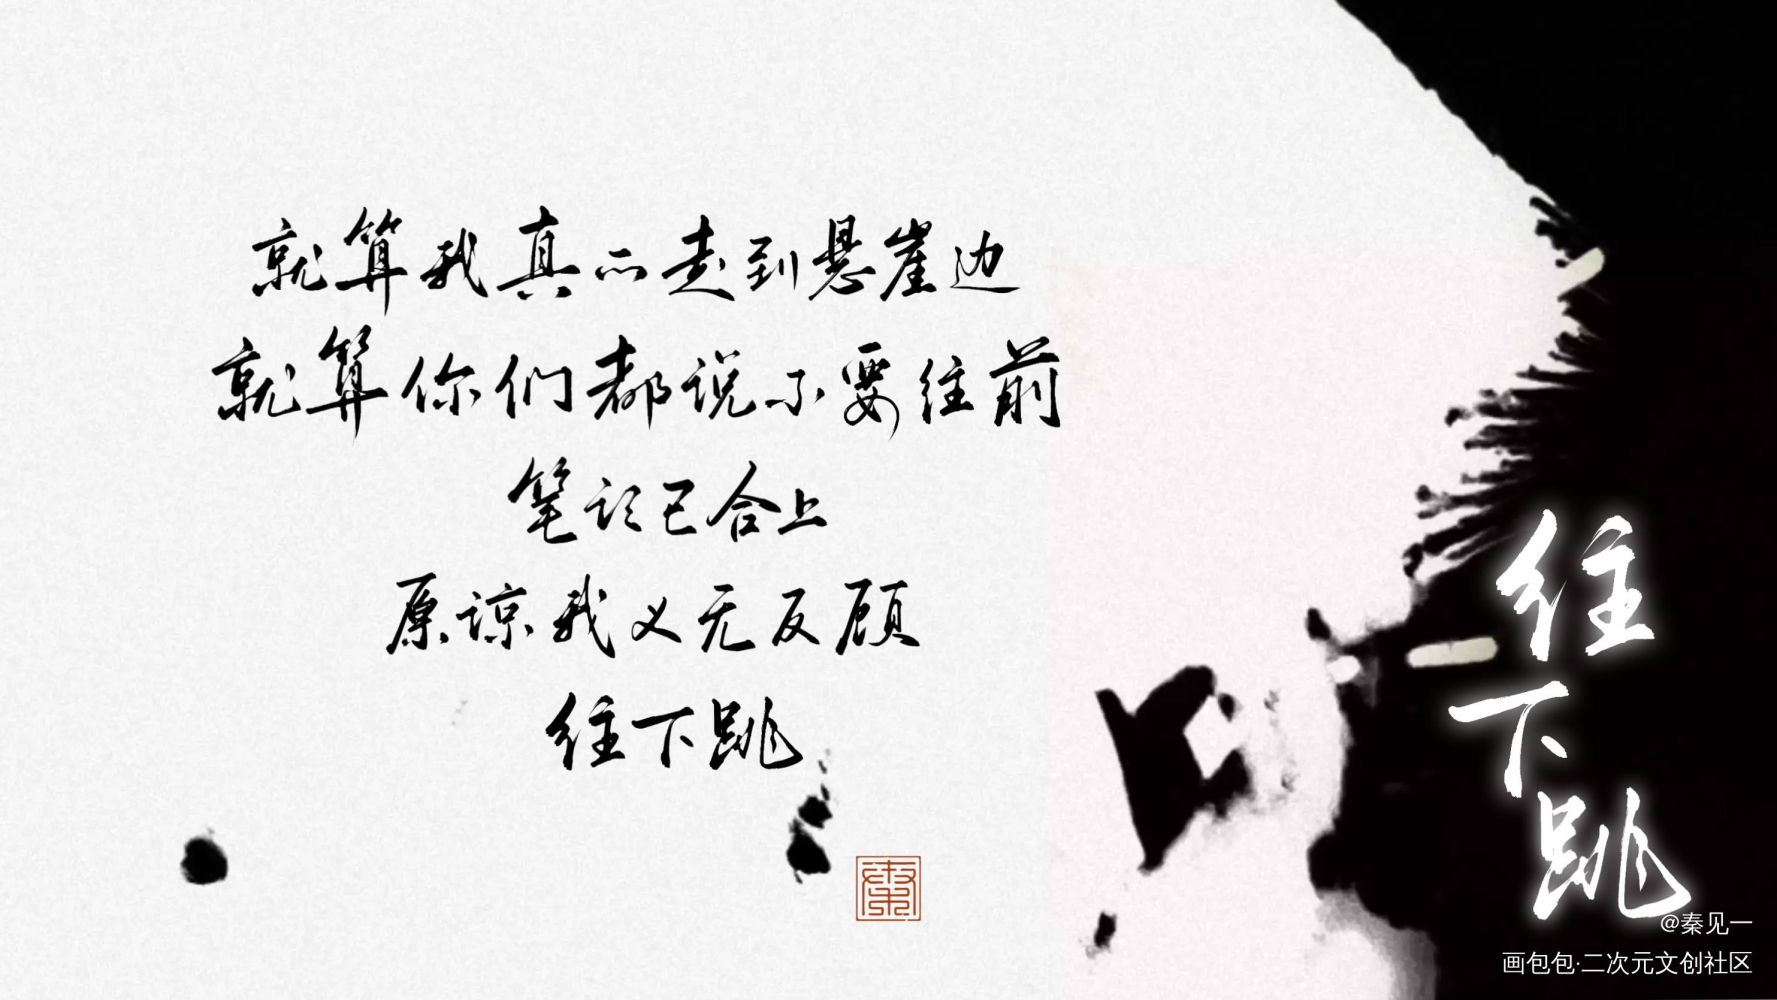 就算我真的走到悬崖边
就算你们都说不要往前
笔记已合上
原谅我义无反顾
往下跳
往下跳
@秦见一
画包包·二次元文创社区